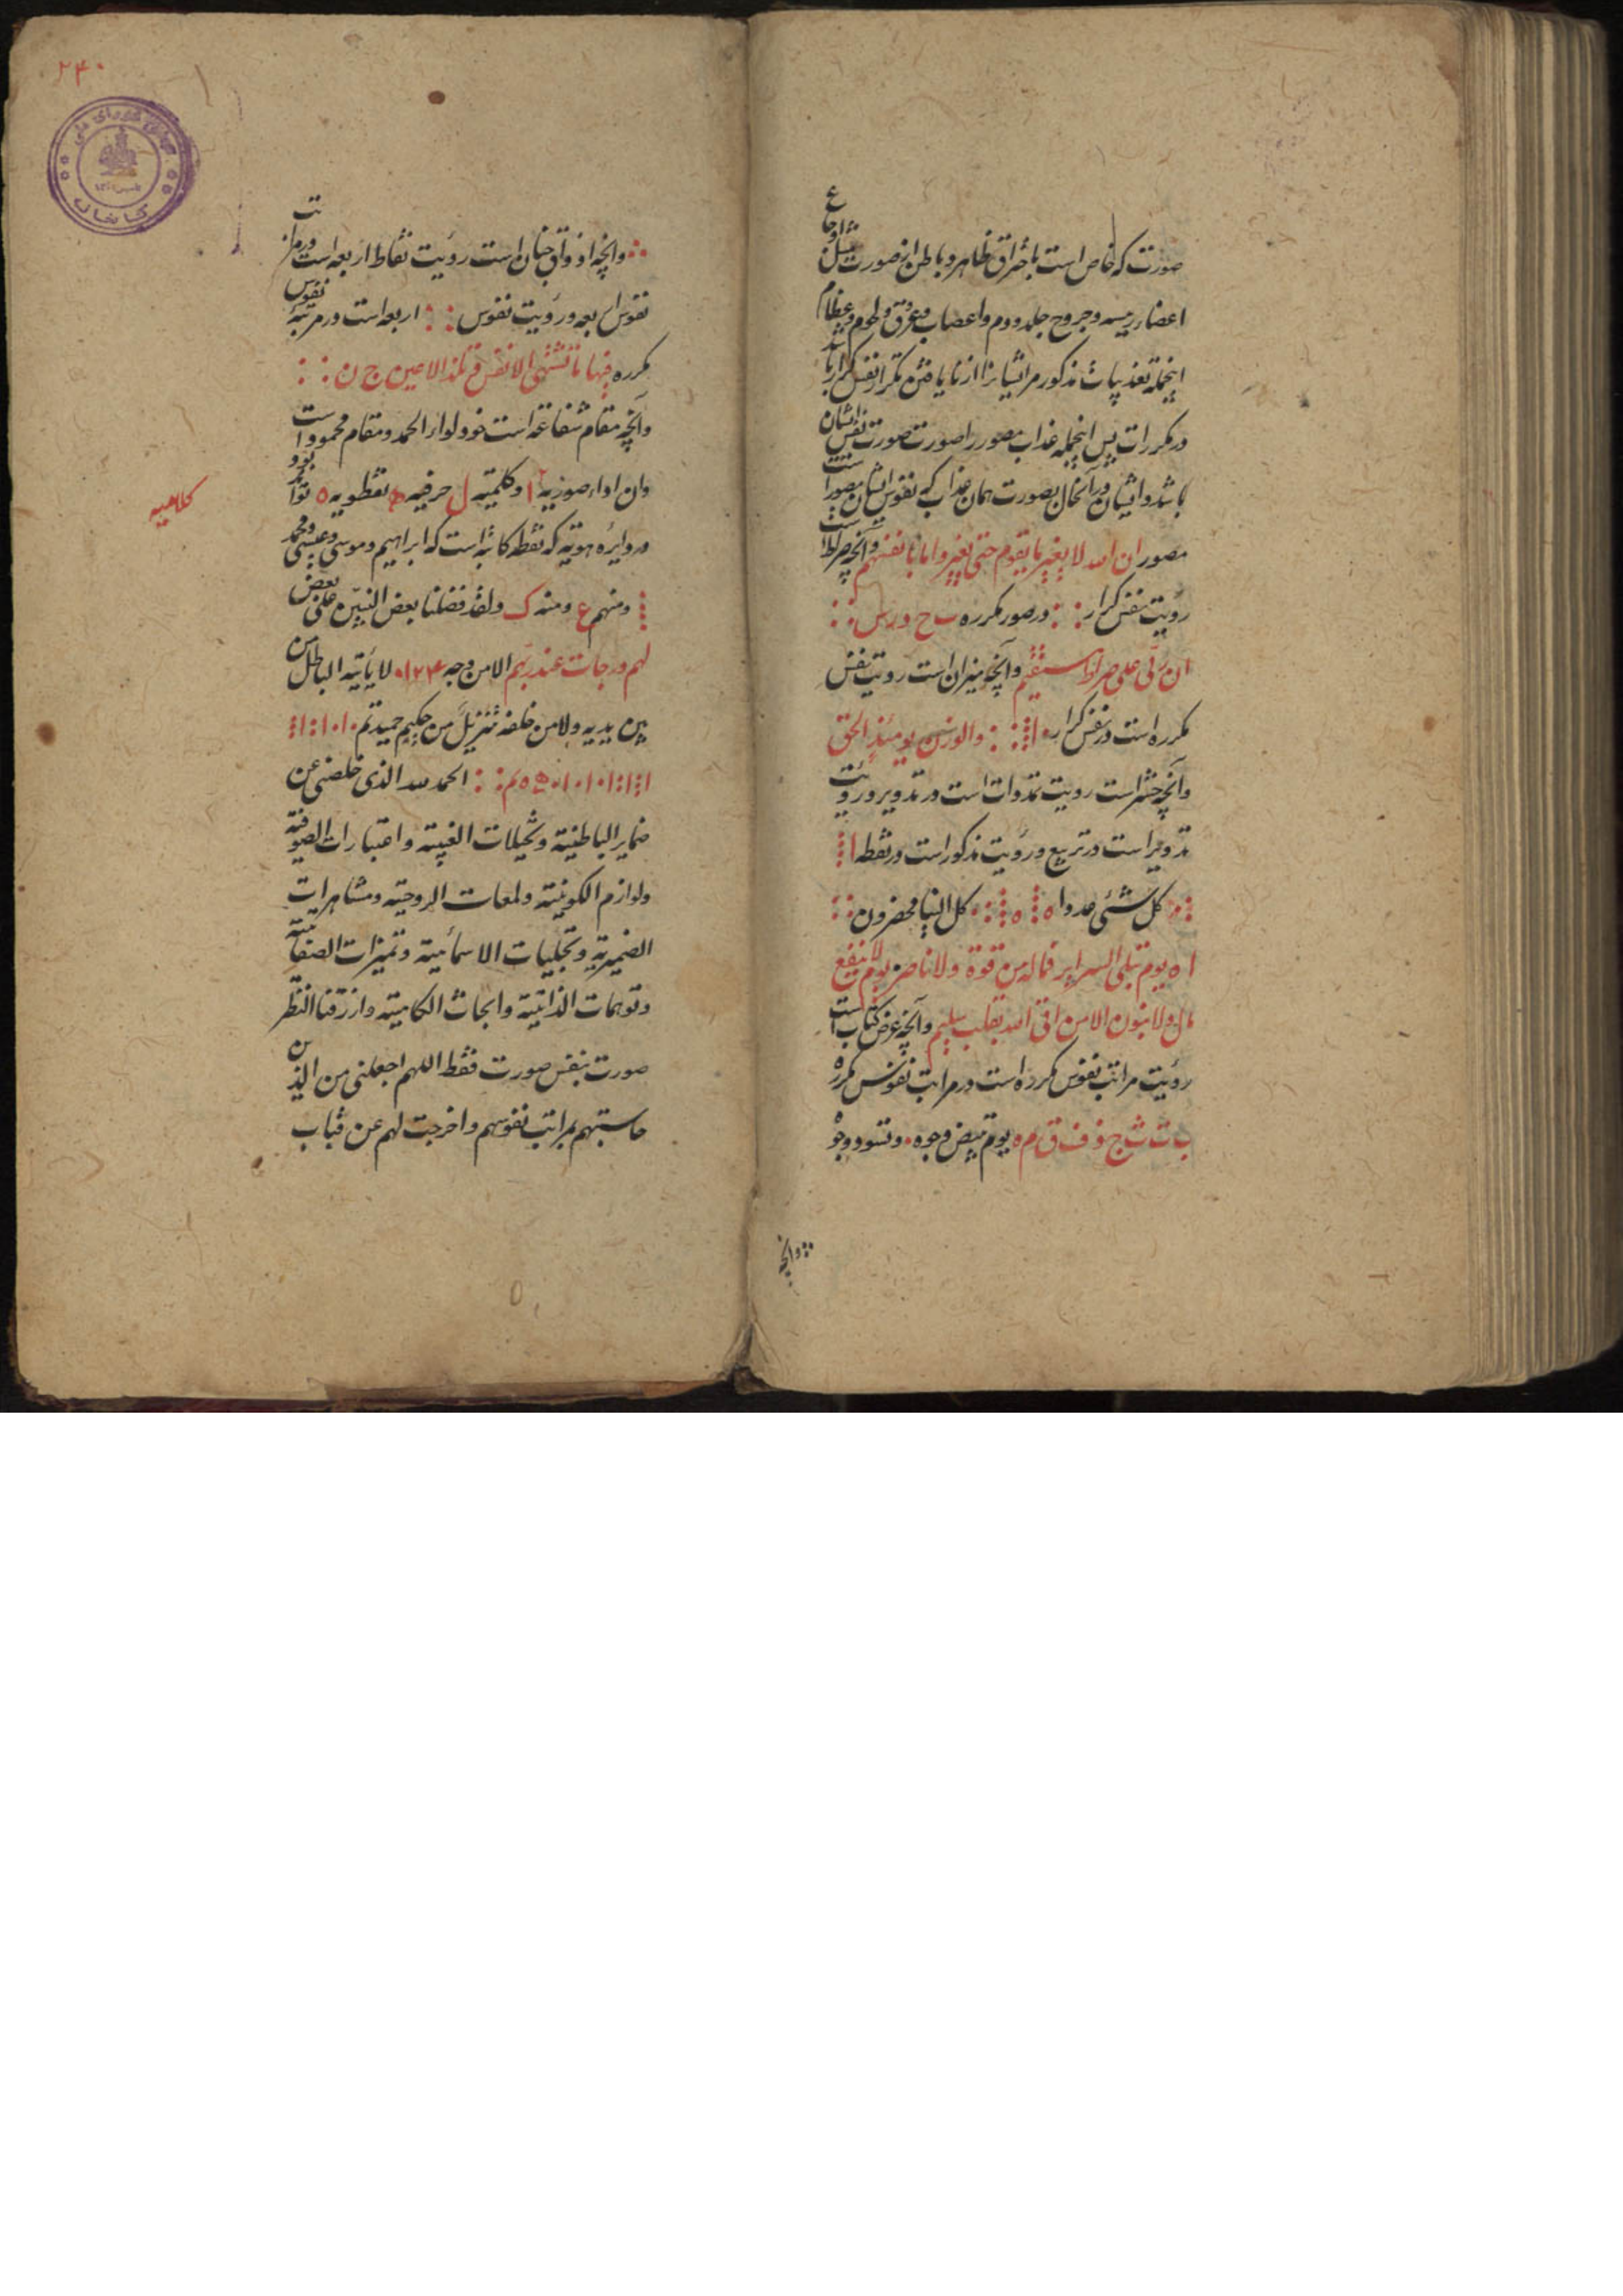 صورت که خاص است باحتراق ظاهر و باطن از صورت مثل اوجاع
اعضاء رییسه و جروح جلد و دم و اعصاب و عروق و لحوم و عظام
اینجمله تعذیبات مذکور مر ایشانرا از نایافتن تکرار نفس کرار باشد
در مکررات پس اینجمله عذاب مصور را صورت صورت نفس ایشان
باشد و ایشان در آنحال بصورت همان عذاب که نفوس ایشان مصور است
مصور ان الله لا یغیر ما بقوم حتی یغیروا ما بانفسهم و آنچه صراط است
رؤیت نفس کرار :: در صور مکرره ب ح د ر س ::
ان ربی علی صراط مستقیم و آنچه میزان است رویت نفس
مکرره است در نفس کرار :: والوزن یومئذ الحق
و آنچه حشر است رویت تمدوات است در تدویر و رویت
تدویر است در تربیع و رؤیت مذکور است در نقطه ا
:: کل شئی عددا ٥ ٥ :: کل الینا محضرون ::
ا ٥ یوم تبلی السرایر فماله من قوة ولا ناصر یوم لا ینفع
مال ولا بنون الا من اتی الله بقلب سلیم و آنچه عرض کتاب است
رؤیت مراتب نفوس مکرره است در مراتب نفوس مکرره
ب ت ث ج ف ق م ٥ یوم تبیض وجوه ۰ و تسود وجوه
و آنچه
۲۴۰
کتابخانه مجلس شورای ملی
کاشان
و آنچه اذواق جنان است رؤیت نقاط اربعه است در مراتب
نفوس اربعه و رؤیت نفوس :: اربعه است در مرتبهٔ نفوس
مکرره فیها ما تشتهی الانفس و تلذ الاعین ج ن ::
و آنچه مقام شفاعة است فوو لواء الحمد و مقام محمود است
وان اواء صوریه ا و کلمیته ل حرفیه ه نقطویه ٥ تواند بود
کلامیه
در دایره هویته که نقطه کاینه است که ابراهیم و موسی و عیسی و محمد
و منهم ع و منه ک ولقد فضلنا بعض النبیین علی بعض
لهم درجات عند ربهم الا من وجه ۱۲۴۰ لا یأتیه الباطل من
بین یدیه ولا من خلفه تنزیل من حکیم حمید تم
الحمد لله الذی خلصنی عن
ضمایر الباطنیة و تخیلات الغیبیة و اعتبارات الصوفیة
ولوازم الکونیة و لمعات الروحیة و مشاهرات
الضمیریة و تجلیات الاسمائیة و تمیزات الصفاتیة
و توهمات الذاتیة و ابحاث الکلامیة و ارزقنا النظر
صورت بنفس صورت فقط اللهم اجعلنی من الذین
حاسبتهم بمراتب نفوسهم و اخرجت لهم عن قباب